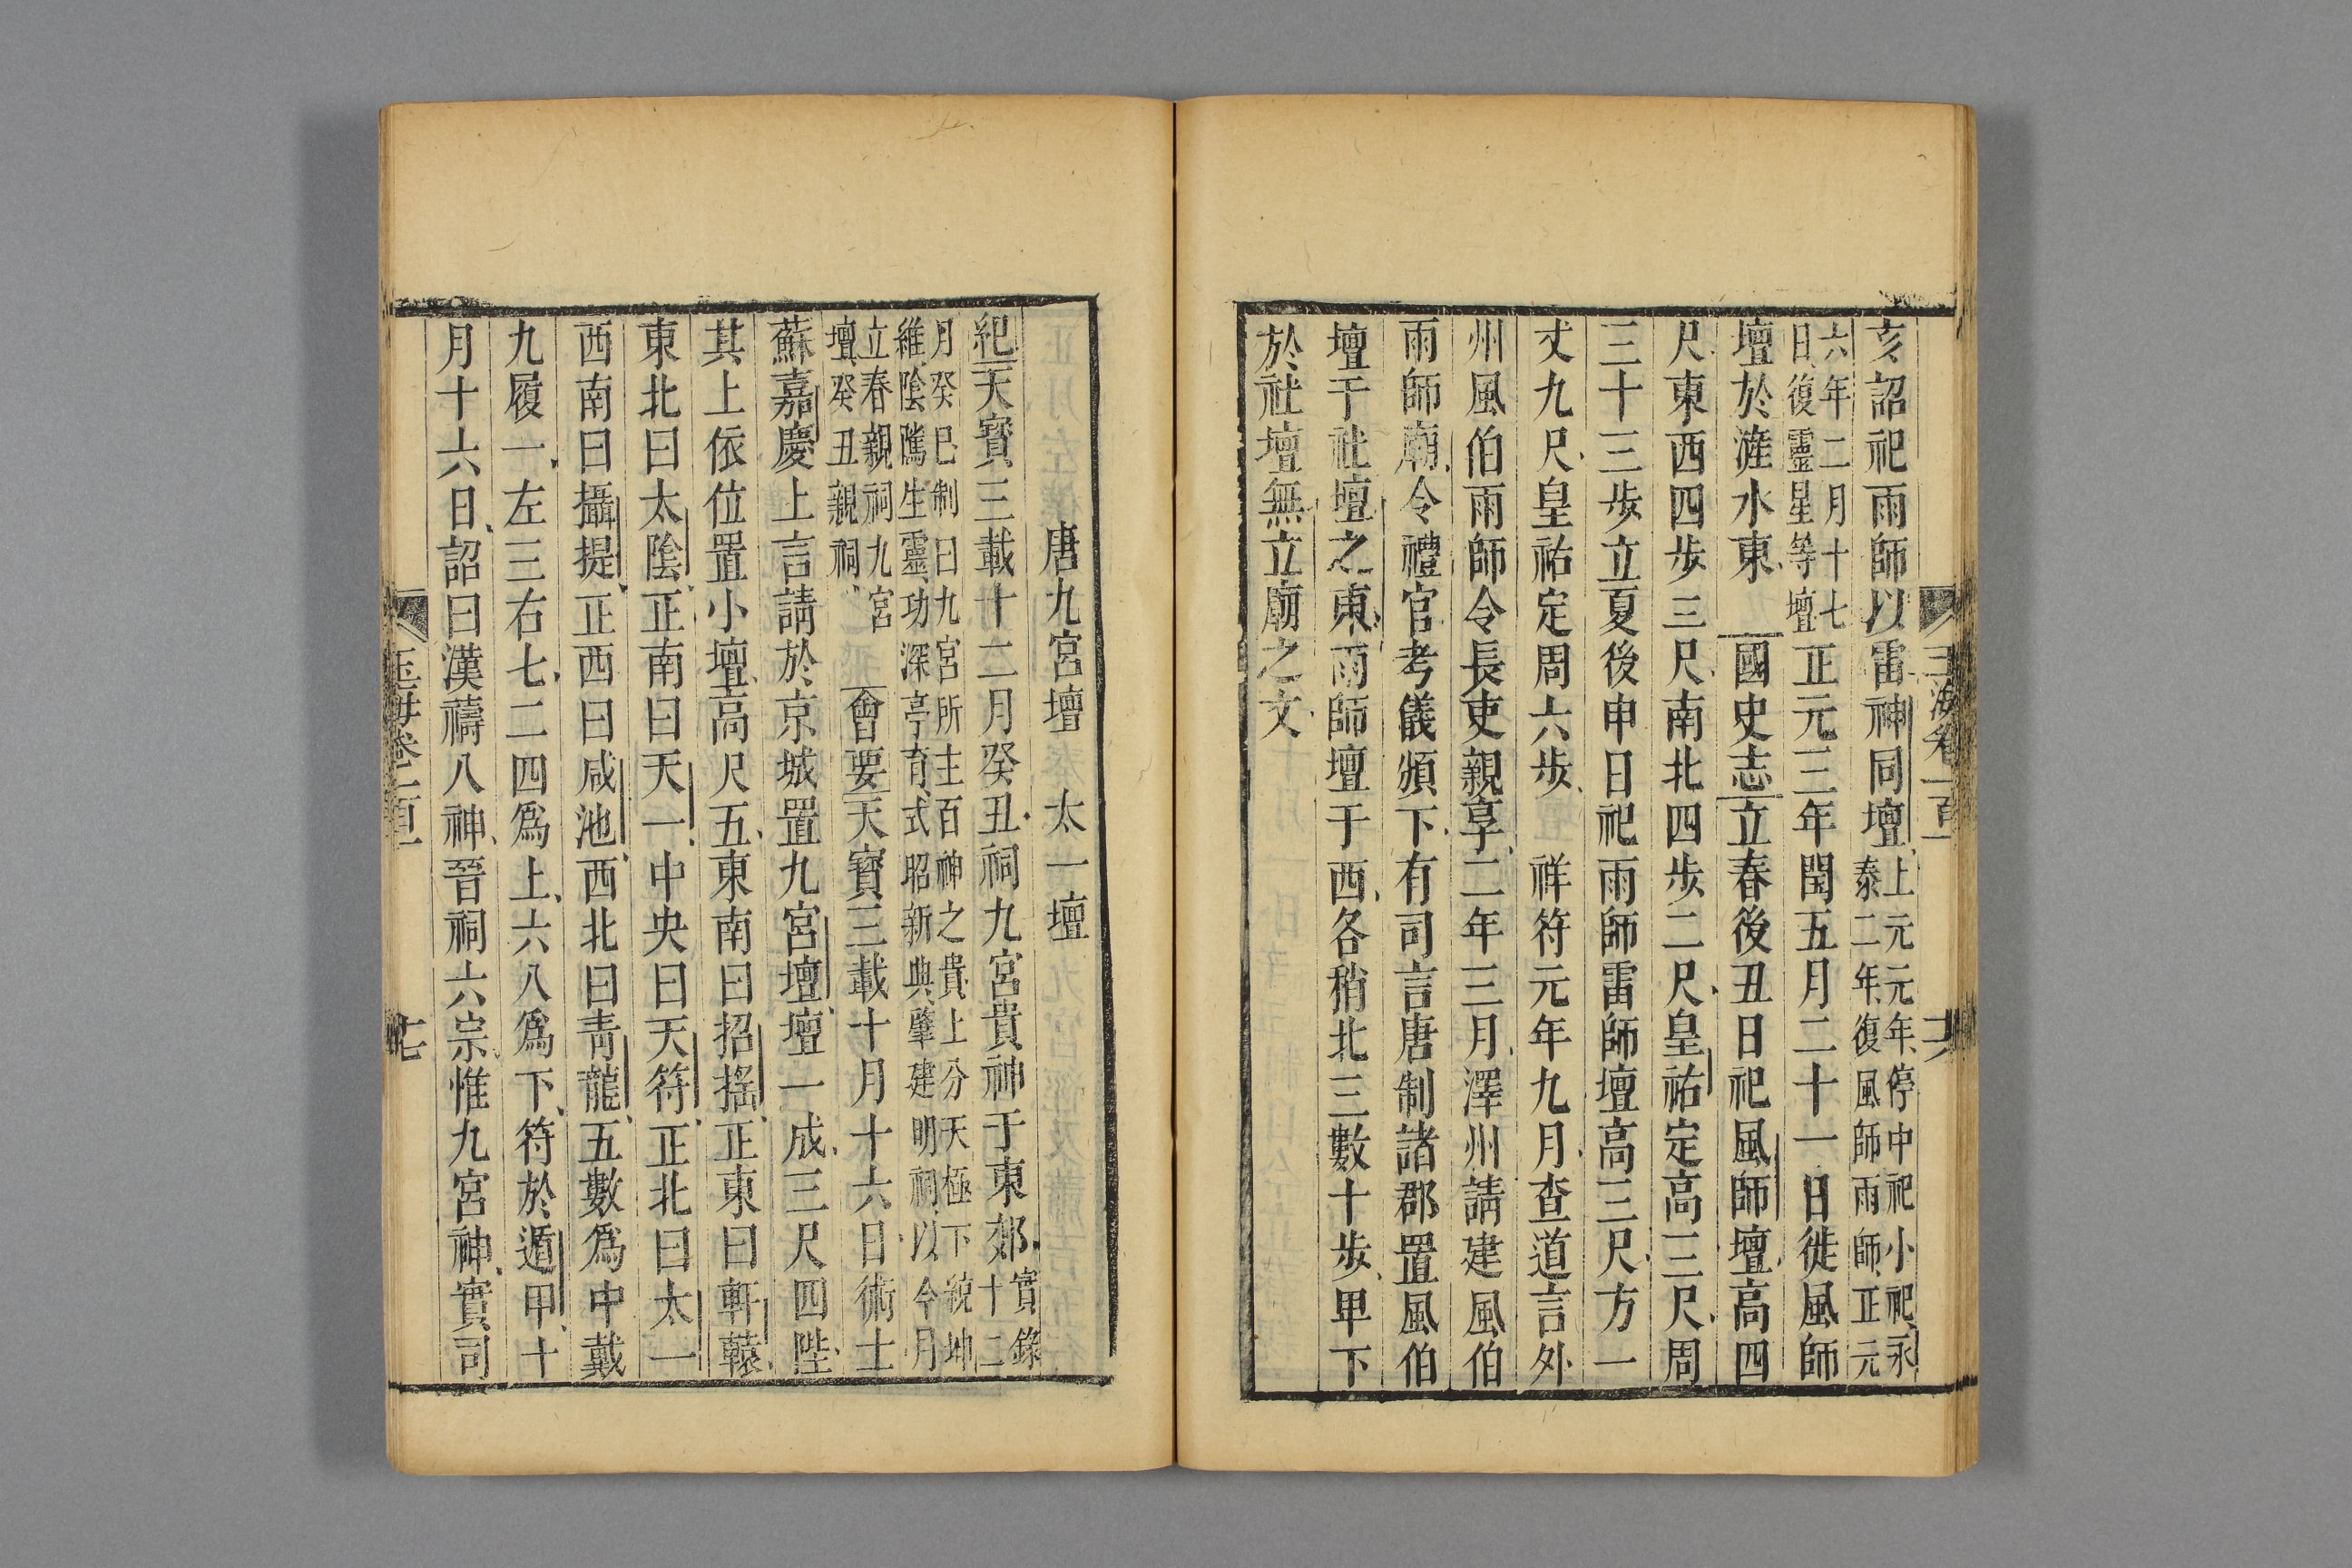 亥詔祀雨師以雷神同壇上元元年停中祀小祀永
泰二年復風師雨師正元
六年二月十七
日復靈星等壇正元三年閏五月二十一日徙風師
壇於滻水東國史志立春後丑日祀風師壇高四
尺東西四步三尺南北四步二尺皇祐定高三尺周
三十三步立夏後申日祀雨師雷師壇高三尺方一
丈九尺皇祐定周六步祥符元年九月查道言外
州風伯雨師令長吏親享二年三月澤州請建風伯
雨師廟令禮官考儀頒下有司言唐制諸郡置風伯
壇于社壇之東雨師壇于西各稍北三數十步卑下
於社壇無立廟之文
玉海卷一百一
十六
唐九宮壇 太一壇
紀天寶三載十二月癸丑祠九宮貴神于東郊實錄
十二
月癸巳制曰九宮所主百神之貴上分天極下統坤
維陰騭生靈功深亭育式昭新典肇建明祠以今月
立春親祠九宮
壇癸丑親祠會要天寶三載十月十六日術士
蘇嘉慶上言請於京城置九宮壇壇一成三尺四陛
其上依位置小壇高尺五東南曰招搖正東曰軒轅
東北曰太陰正南曰天一中央曰天符正北曰太一
西南曰攝提正西曰咸池西北曰青龍五數爲中戴
九履一左三右七二四爲上六八爲下符於遁甲十
月十六日詔曰漢禱八神晉祠六宗惟九宮神實司
玉海卷一百一
十七